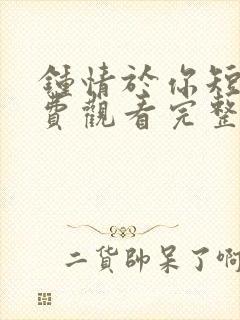 鍾情於你短
費觀看完整
二貨帥呆了啊